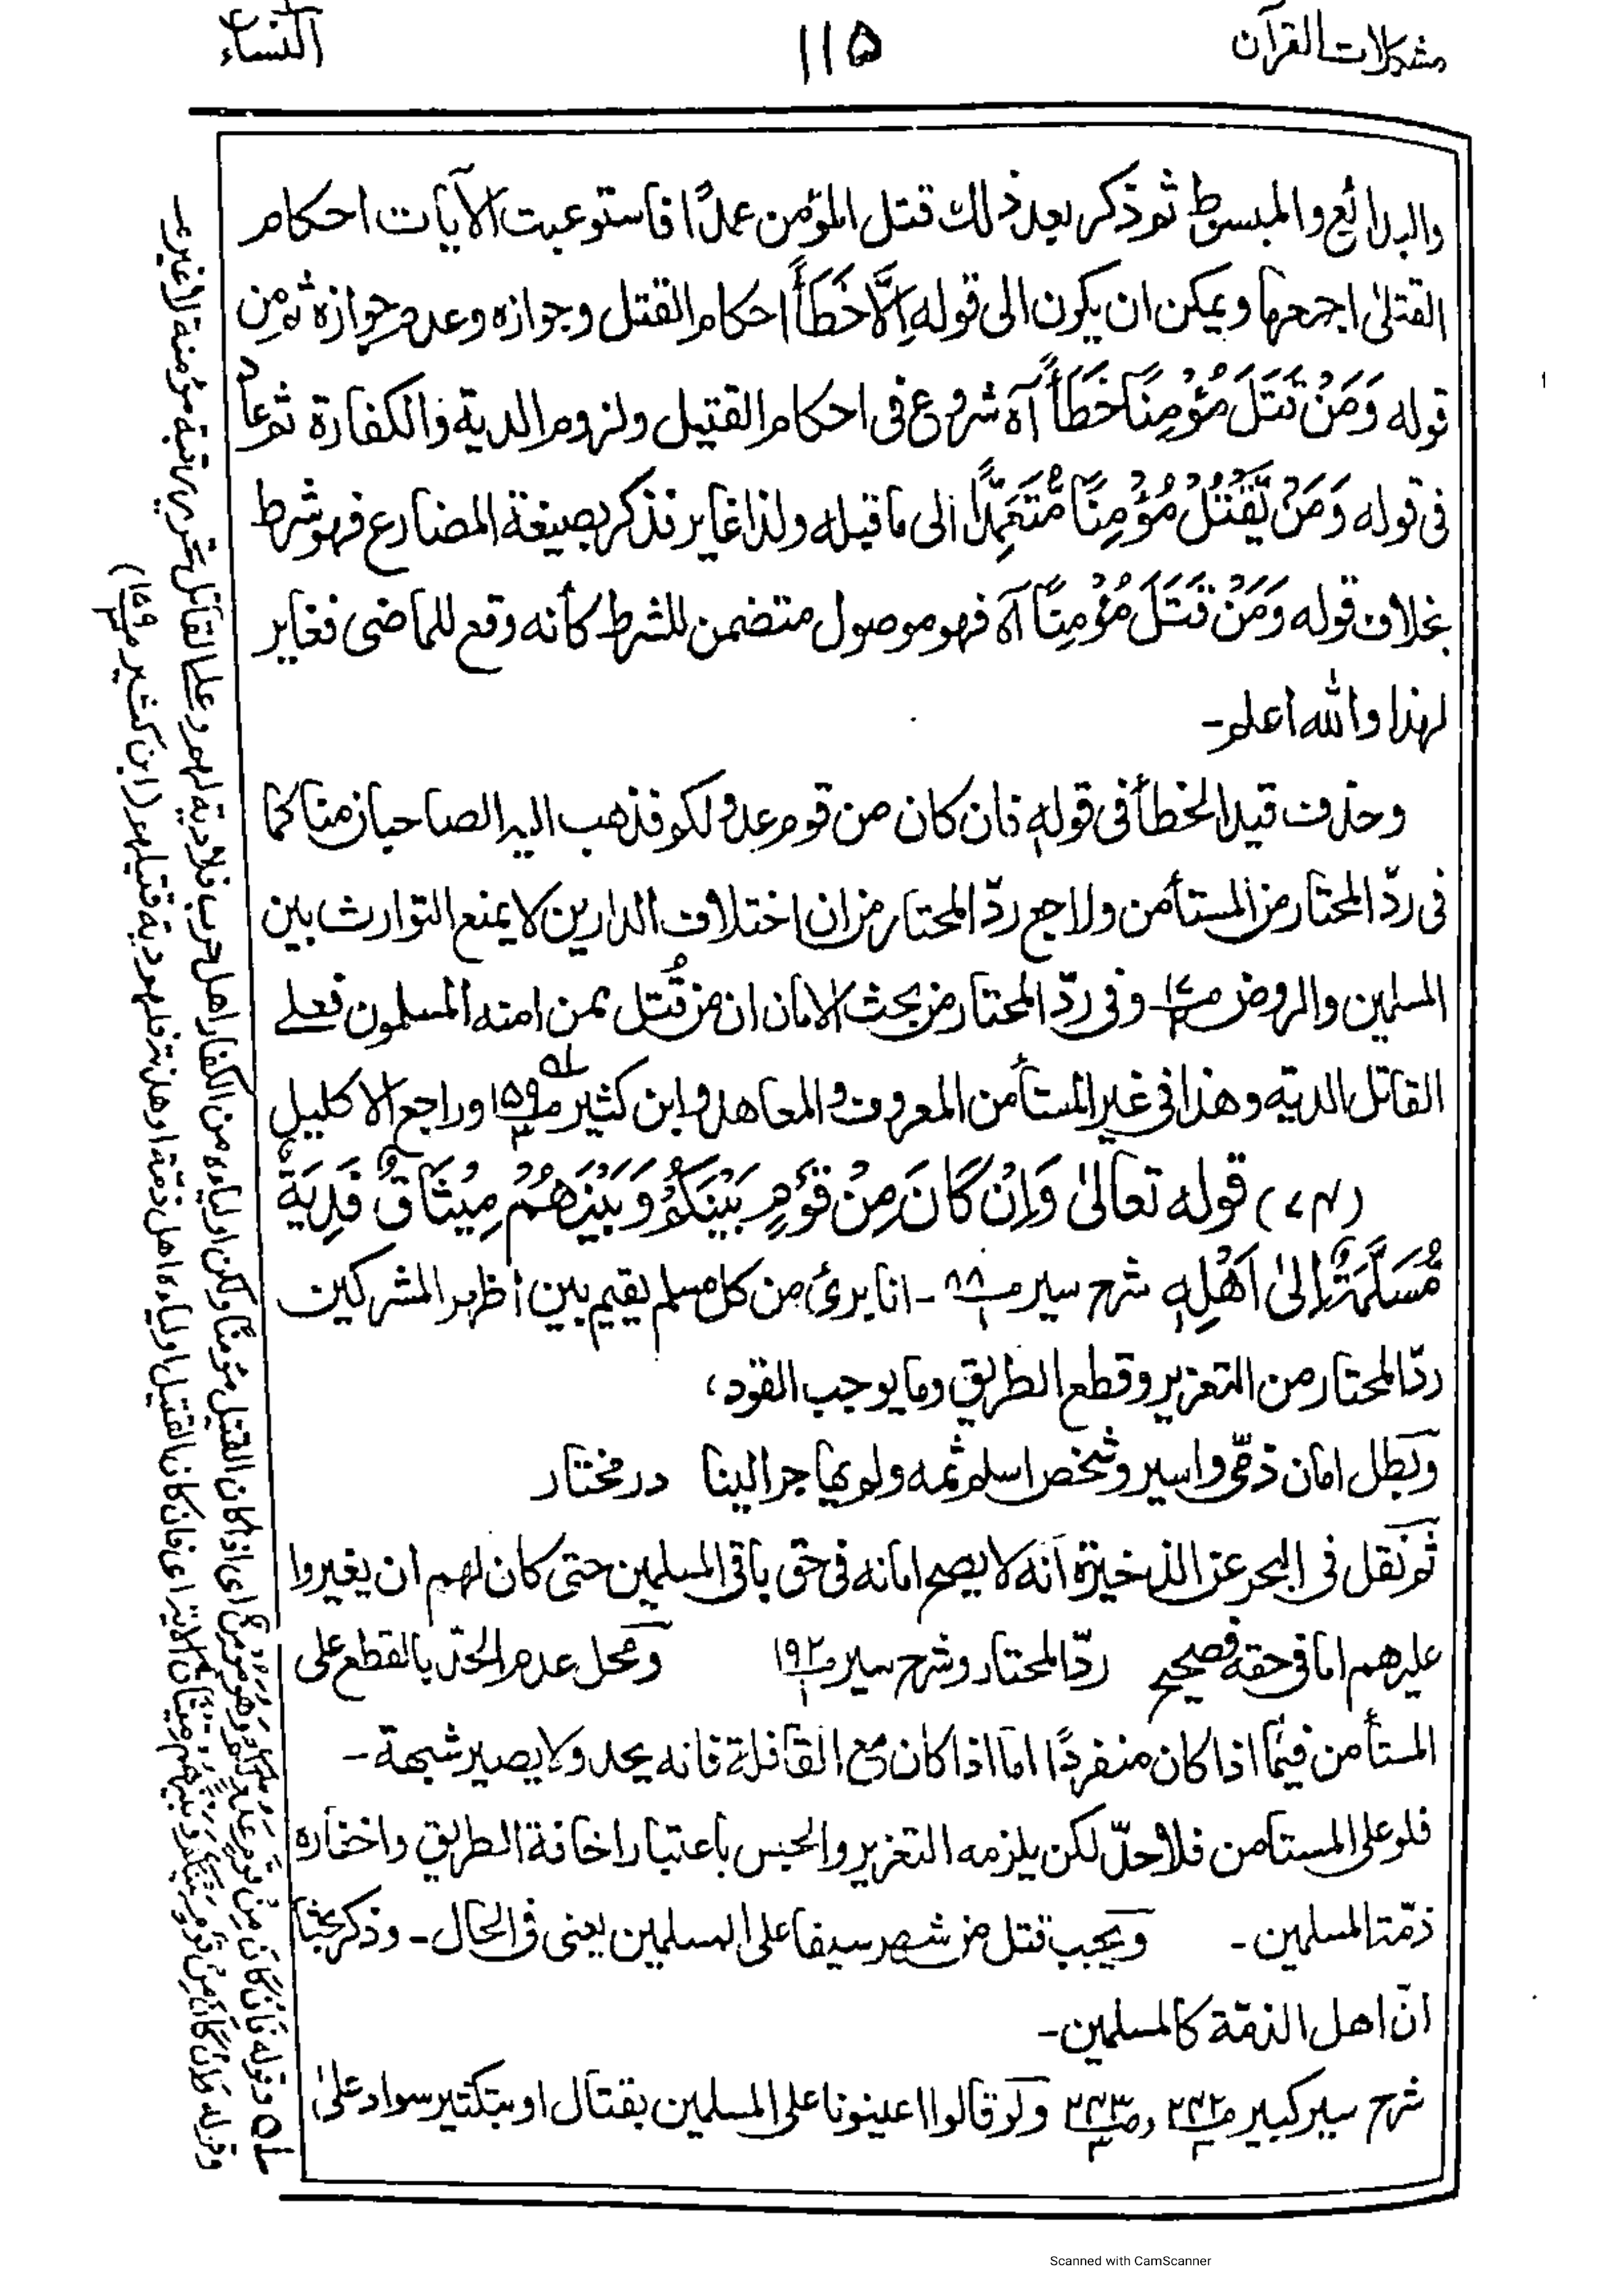 مشكلات القرآن
١١٥
النساء ع
والبدائع والمبسوط ثم ذكر بعد ذلك قتل المؤمن عمدًا فاستوعبت الآيات احكام
القتلىٰ اجمعها ويمكن ان يكون الى قوله اِلَّا خَطَأً احكام القتل وجوازه وعدم جوازه ثم من
قوله وَمَنْ قَتَلَ مُؤْمِنًا خَطَأً آه شروع فى احكام القتيل ولزوم الدية والكفارة ثم عاد
فى قوله وَمَنْ يَّقْتُلْ مُؤْمِنًا مُّتَعَمِّدًا الى ما قبله ولذا غاير فذكر بصيغة المضارع فهو شرط
بخلاف قوله وَمَنْ قَتَلَ مُؤْمِنًا آه فهو موصول متضمن للشرط كأنه وقع للماضى فغاير
لهذا والله اعلم۔
وحذف قيد الخطأ فى قوله فان كان من قوم عدو لكم فذهب اليه الصاحبان منا كما
فى ردّ المحتار من المستأمن ولاجع ردّ المحتار من ان اختلاف الدارين لا يمنع التوارث بين
المسلمين والروض وفى ردّ المحتار من بحث الامان ان من قُتل ممن امنه المسلمون فعلے
القاتل الدية وهذا فى غير المستأمن المعروف والمعاهد وابن كثير ص١٥٩ وراجع الاكليل
(٧٤) قوله تعالىٰ وَاِنْ كَانَ مِنْ قَوْمٍ بَيْنَكُمْ وَبَيْنَهُمْ مِيْثَاقٌ فَدِيَةٌ
مُّسَلَّمَةٌ اِلىٰ اَهْلِهٖ شرح سير ص٨٨ ۔ انا برئ من كل مسلم يقيم بين اظهر المشركين
ردّ المحتار من التعزير وقطع الطريق وما يوجب القود،
وبطل امان ذمّى واسير وشخص اسلم ثمه ولم يهاجر الينا در مختار
ثم نقل فى البحر عن الذخيرة انه لا يصح امانه فى حق باقى المسلمين حتى كان لهم ان يغيروا
عليهم اما فى حقه فصحيح ردّ المحتار وشرح سير ص١٩٢ ومحل عدم الحدّ بالقطع على
المستأمن فيما اذا كان منفردًا اما اذا كان مع القافلة فانه يحد ولا يصير شبهة۔
فلو على المستأمن فلا حدّ لكن يلزمه التعزير والحبس باعتبار اخافة الطريق واخفاره
ذمّة المسلمين۔ ويجب قتل من شهر سيفا على المسلمين يعنى فى الحال۔ وذكر بحثا
انّ اهل الذمّة كالمسلمين۔
شرح سير كبير ص٢٤٢ وص٢٤٣ ولو قالوا اعينونا على المسلمين بقتال او بتكثير سواد علىٰ
٥١ قوله فَاِنْ كَانَ مِنْ قَوْمٍ عَدُوٍّ لَّكُمْ وَهُوَ مُؤْمِنٌ اى اذا كان القتيل مؤمنًا ولكن اولياءه من الكفار اهل حرب فلا دية لهم وعلى القاتل تحرير رقبة مؤمنة لا غير۔
وقوله وَاِنْ كَانَ مِنْ قَوْمٍ بَيْنَكُمْ وَبَيْنَهُمْ مِيْثَاقٌ الآية اى فان كان القتيل اولياءه اهل ذمّة او هدنة فلهم دية قتيلهم (ابن كثير ص١٥٩)
Scanned with CamScanner